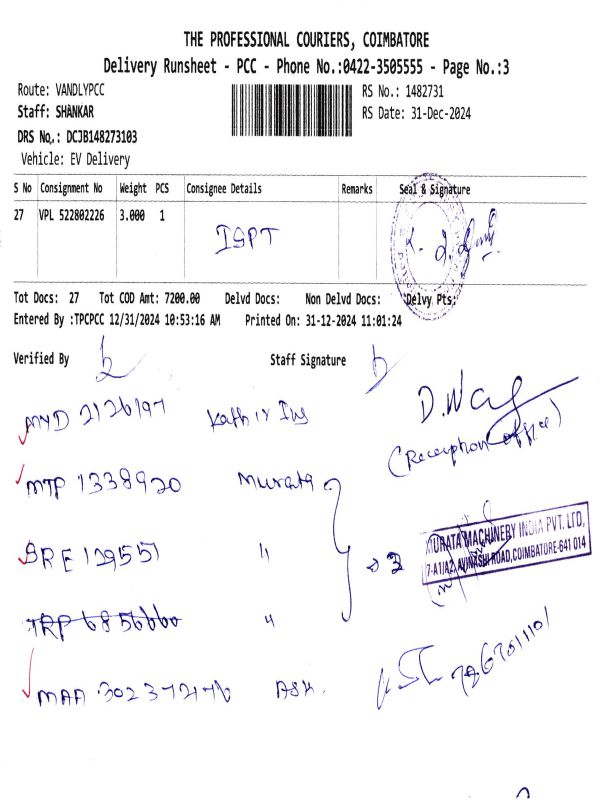 THE PROFESSIONAL COURIERS, COIMBATORE
Delivery Runsheet - PCC - Phone No.:0422-3505555 - Page No.:3
Route: VANDLYPCC RS No.: 1482731
Staff: SHANKAR RS Date: 31-Dec-2024
DRS No.: DCJB148273103
Vehicle: EV Delivery
S No Consignment No Weight PCS Consignee Details Remarks Seal & Signature
27 VPL 522802226 3.000 1 ISPT
Tot Docs: 27 Tot COD Amt: 7200.00 Delvd Docs: Non Delvd Docs: Delvy Pts:
Entered By :TPCPCC 12/31/2024 10:53:16 AM Printed On: 31-12-2024 11:01:24
Verified By Staff Signature
2126197 Kathir
(Reception office)
MTP 1338920 Murata
BRE 129551 "
MURATA MACHINERY INDIA PVT. LTD,
7-A1/A2, AVINASHI ROAD, COIMBATORE-641 014
TRP 6856660 "
MAA 302372176